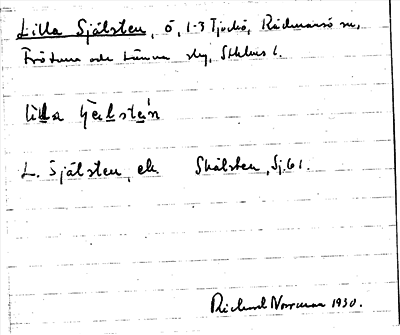 Lilla Själsten, ö, 1-3 Tjockö, Rådmansö sn,
Frötuna och Länna skg, Sthlms l.
lilla
L. Själsten, ek. Skälsten, Sj.61.
Rickard Norrman 1930.